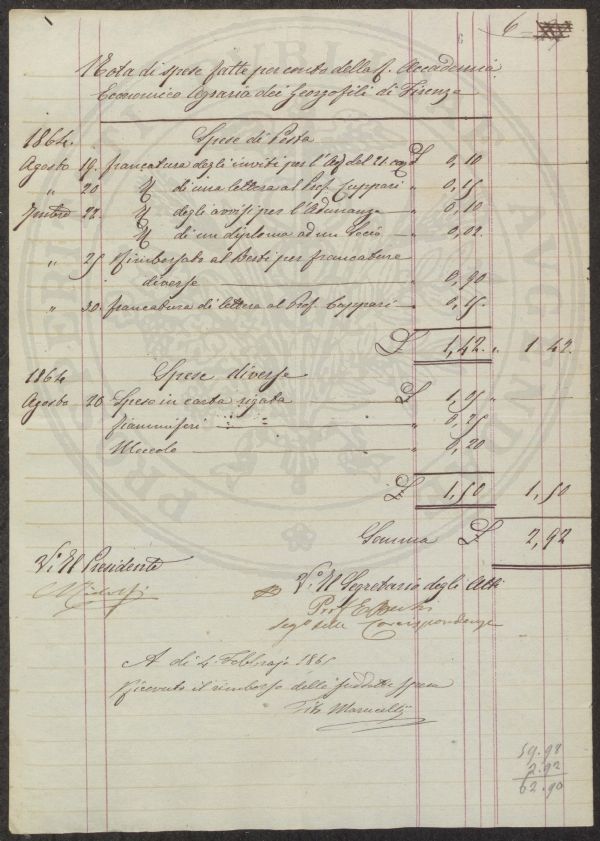 6
6
Nota di spese fatte per conto della R. Accademia
Economico Agraria dei Georgofili di Firenze
1864. Spese di Posta
Agosto 19. francatura degli inviti per l'Ad. del 21. £ 0,10
" 20 di una lettera al Prof. Cuppari " 0,15
22. degli avvisi per l'Adunanza " 0,10
di un diploma ad un Socio " 0,02
" 25 Rimborsato al Besti per francature
diverse " 0,90
" 30. francatura di lettera al Prof. Cuppari " 0,15
£ 1,42. " 1 42.
1864 Spese diverse
Agosto 20. Spese in carta rigata £ 1,05 "
fiammiferi " 0,25
Moccolo " 0,20
£ 1,50 1,50
Somma £ 2,92
V.° Il Presidente
Ridolfi
V.° Il Segretario degli Atti
Seg.° delle Corrispondenze
A dì 4 Febbrajo 1865
Ricevuto il rimborso delle suddette spese
Tito Marucelli
59.98
2.92
62.90